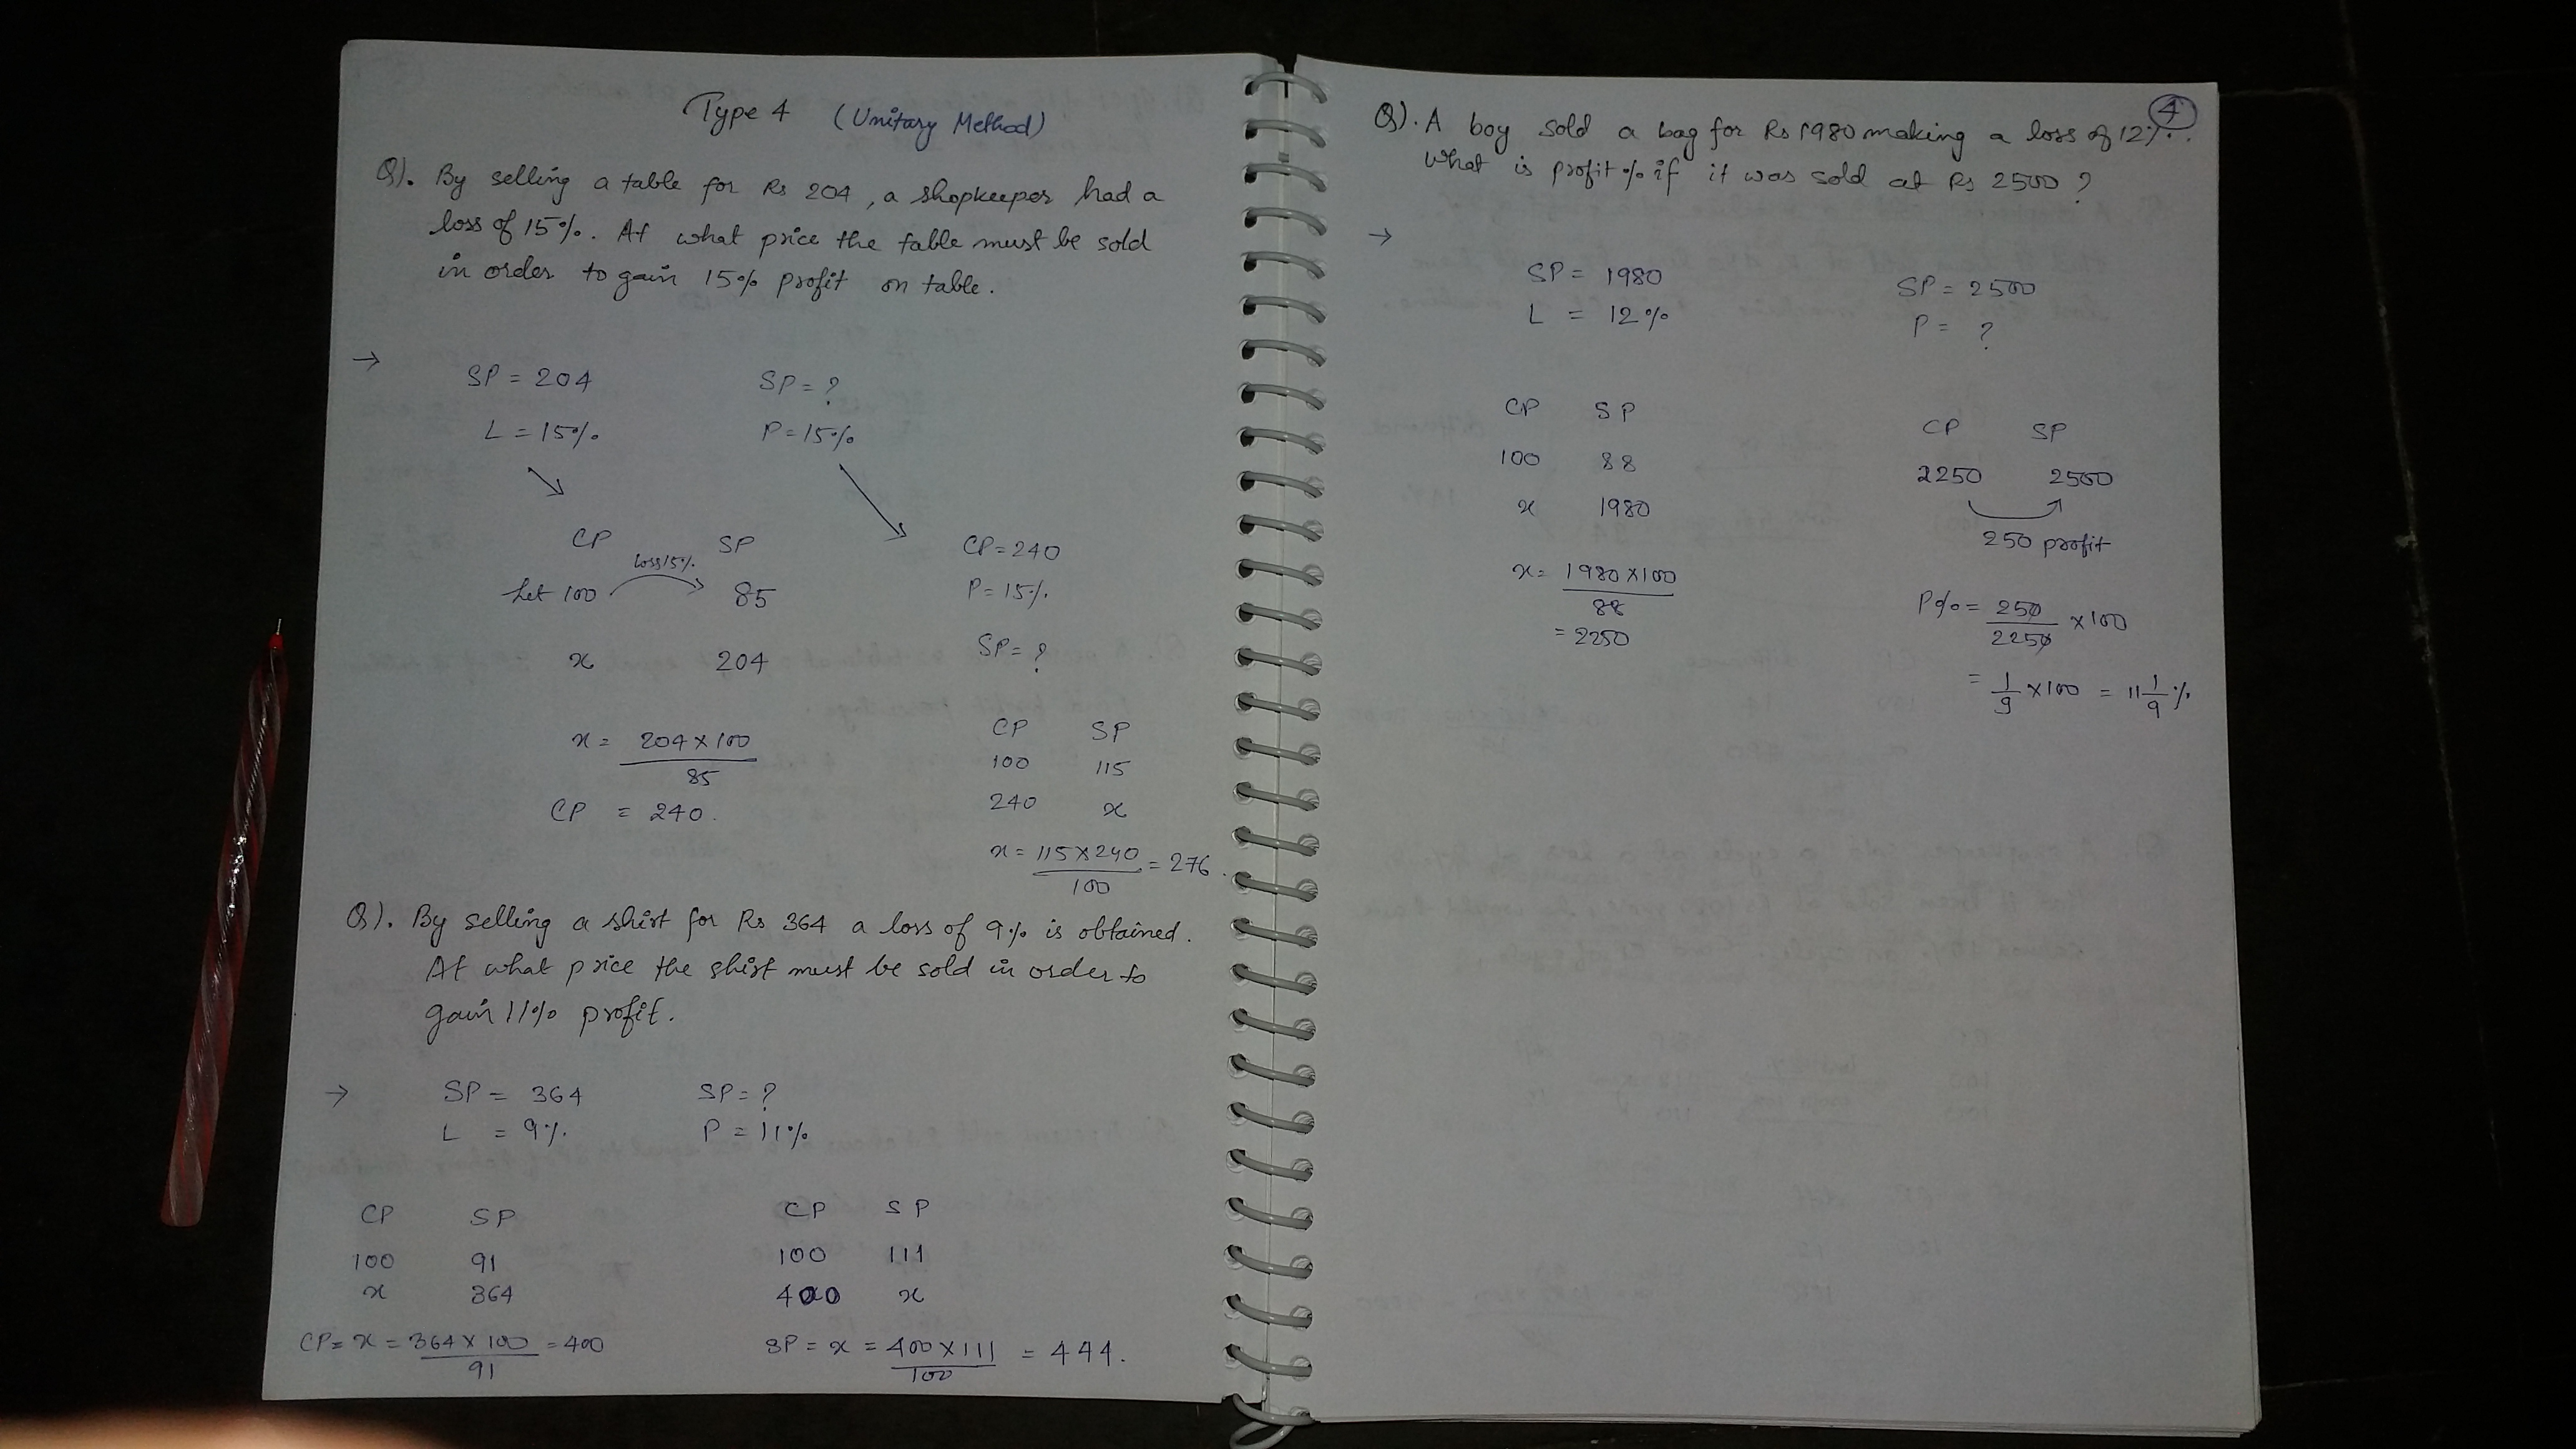 Type 4 (Unitary Method)
Q). By selling a table for Rs 204, a shopkeeper had a
loss of 15%. At what price the table must be sold
in order to gain 15% profit on table.
→
SP = 204 SP = ?
L = 15% P = 15%
CP SP
loss 15%
Let 100 85
x 204
x = 204 × 100
85
CP = 240.
CP = 240
P = 15%
SP = ?
CP SP
100 115
240 x
x = 115 × 240 = 276.
100
Q). By selling a shirt for Rs 364 a loss of 9% is obtained.
At what price the shirt must be sold in order to
gain 11% profit.
→ SP = 364 SP = ?
L = 9% P = 11%
CP SP
100 91
x 364
CP = x = 364 × 100 = 400
91
CP SP
100 111
400 x
SP = x = 400 × 111 = 444.
100
4
Q). A boy sold a bag for Rs 1980 making a loss of 12%.
What is profit % if it was sold at Rs 2500 ?
→
SP = 1980 SP = 2500
L = 12% P = ?
CP SP
100 88
x 1980
x = 1980 × 100
88
= 2250
CP SP
2250 2500
250 profit
P% = 250 × 100
2250
= 1/9 × 100 = 11 1/9 %